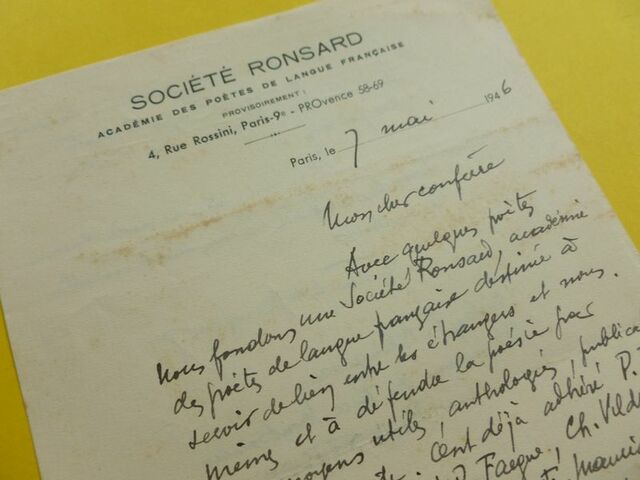 SOCIÉTÉ RONSARD
ACADÉMIE DES POÈTES DE LANGUE FRANÇAISE
PROVISOIREMENT :
4, Rue Rossini, Paris-9e - PROvence 58-69
Paris, le 7 mai 1946
Mon cher confrère
Avec quelques poètes
nous fondons une Société Ronsard, académie
des poètes de langue française destinée à
servir de lien entre les étrangers et nous
mêmes et à défendre la poésie par
moyens utiles, anthologies, publica
Ont déjà adhéré P.
Fargue, Ch. Vild
Maurice